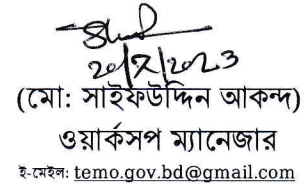 20/7/2023
(মো: সাইফউদ্দিন আকন্দ)
ওয়ার্কসপ ম্যানেজার
ই-মেইল: temo.gov.bd@gmail.com